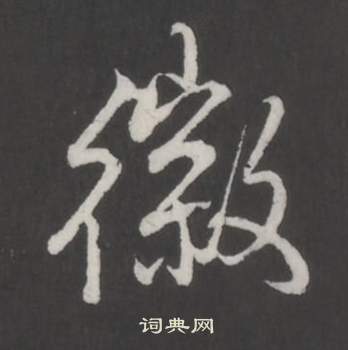 徽
词典网